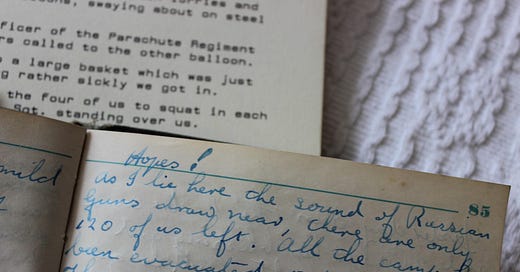 loons, swaying about on steel
ficer of the Parachute Regiment
rs called to the other balloon.
a large basket which was just
g rather sickly we got in.
the four of us to squat in each
Sgt. standing over us.
mild
Hopes!
85
As I lie here the sound of Russian
Guns draw near, there are only
120 of us left. All the
been evacuated